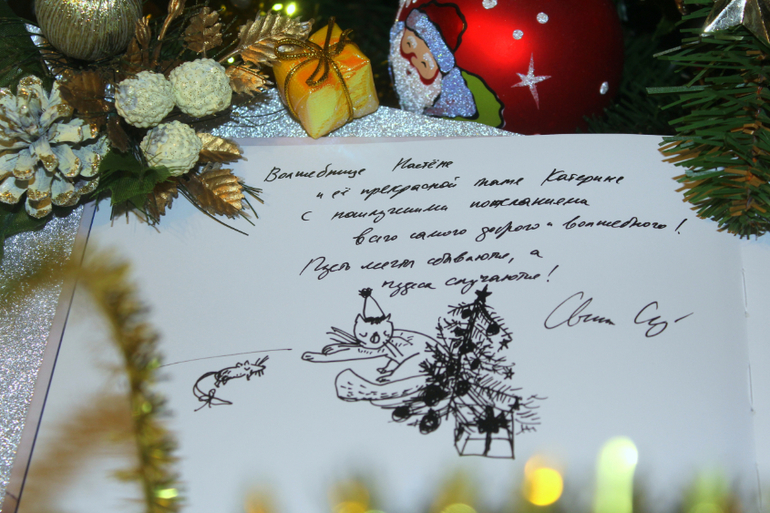 Волшебнице Настёне
и её прекрасной маме Катерине
с наилучшими пожеланиями
всего самого доброго и волшебного!
Пусть мечты сбываются, а
чудеса случаются!